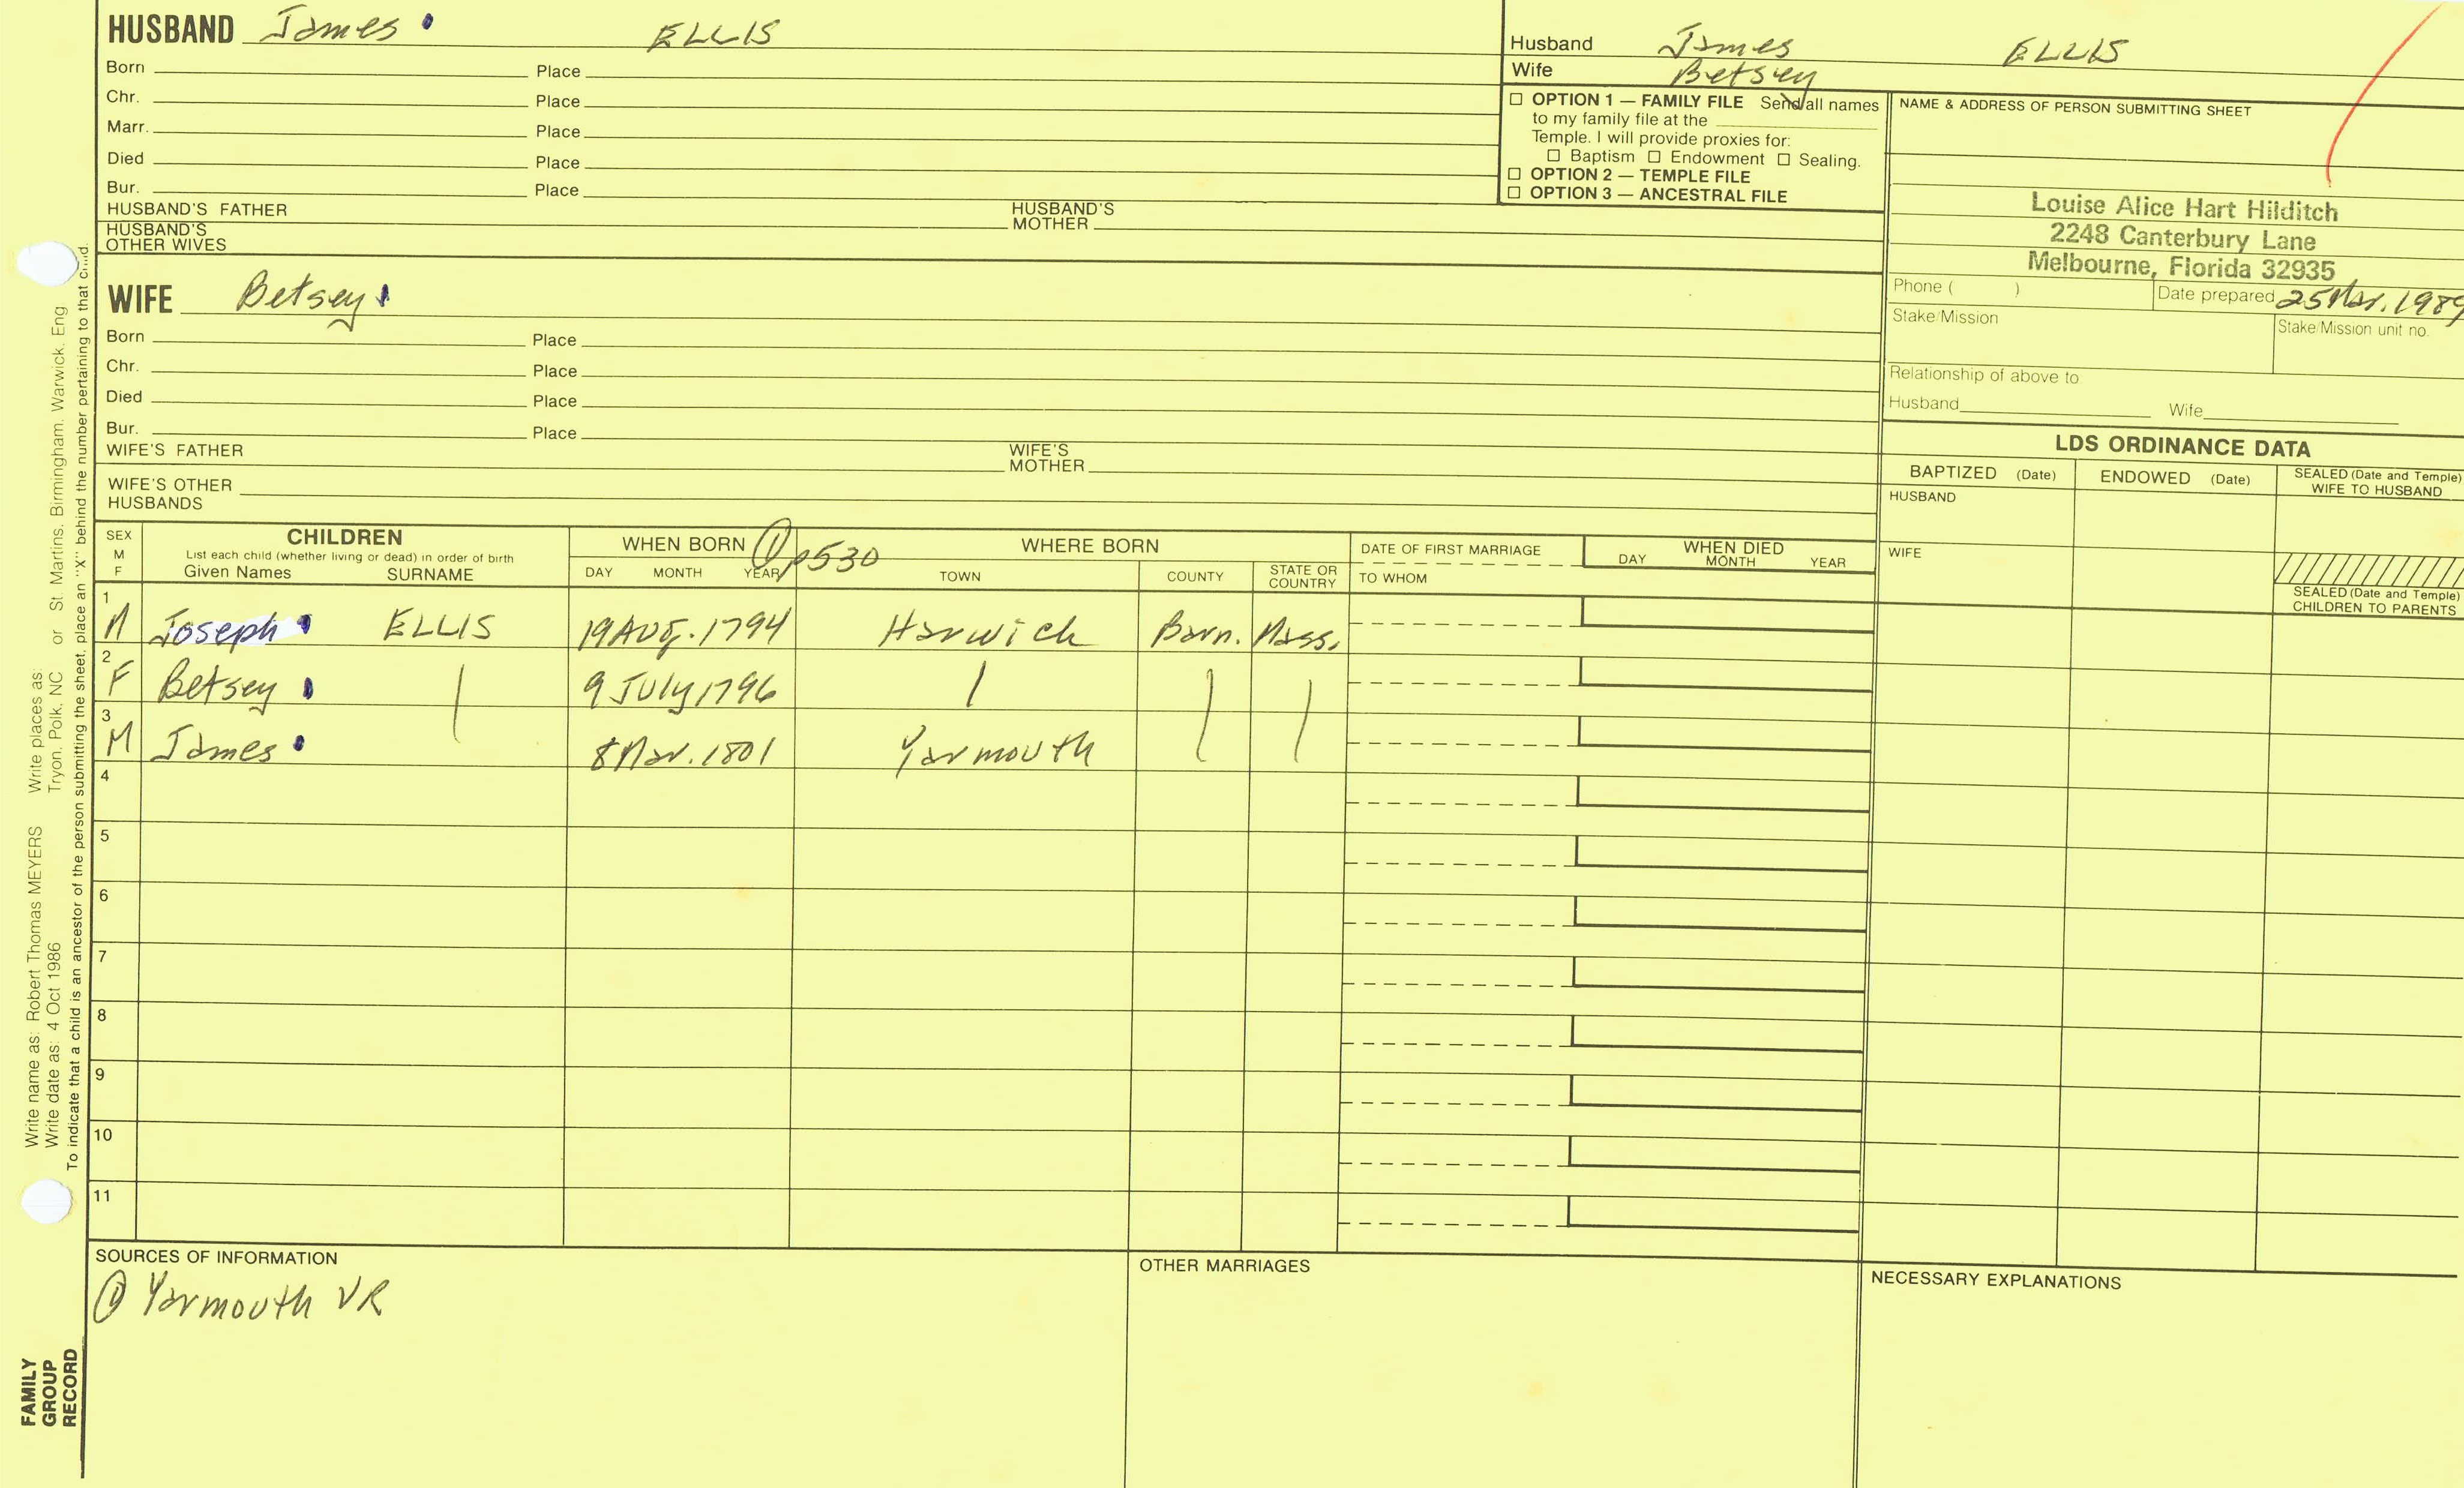 HUSBAND James ELLIS
Born Place
Chr. Place
Marr. Place
Died Place
Bur. Place
HUSBAND'S FATHER HUSBAND'S MOTHER
HUSBAND'S OTHER WIVES
Husband James ELLIS
Wife Betsey
☐ OPTION 1 — FAMILY FILE Send all names
to my family file at the
Temple. I will provide proxies for:
☐ Baptism ☐ Endowment ☐ Sealing.
☐ OPTION 2 — TEMPLE FILE
☐ OPTION 3 — ANCESTRAL FILE
NAME & ADDRESS OF PERSON SUBMITTING SHEET
Louise Alice Hart Hilditch
2248 Canterbury Lane
Melbourne, Florida 32935
Phone ( ) Date prepared 25 Mar. 1989
Stake/Mission Stake/Mission unit no.
Relationship of above to
Husband Wife
WIFE Betsey
Born Place
Chr. Place
Died Place
Bur. Place
WIFE'S FATHER WIFE'S MOTHER
WIFE'S OTHER HUSBANDS
LDS ORDINANCE DATA
BAPTIZED (Date) ENDOWED (Date) SEALED (Date and Temple) WIFE TO HUSBAND
HUSBAND
WIFE
SEALED (Date and Temple) CHILDREN TO PARENTS
SEX M F
CHILDREN
List each child (whether living or dead) in order of birth
Given Names SURNAME
WHEN BORN ① p530
DAY MONTH YEAR
WHERE BORN
TOWN COUNTY STATE OR COUNTRY
DATE OF FIRST MARRIAGE
TO WHOM
WHEN DIED
DAY MONTH YEAR
1 M Joseph ELLIS 19 Aug. 1794 Harwich Barn. Mass.
2 F Betsey 9 July 1796
3 M James 8 Mar. 1801 Yarmouth
4
5
6
7
8
9
10
11
SOURCES OF INFORMATION
① Yarmouth VR
OTHER MARRIAGES
NECESSARY EXPLANATIONS
Write name as: Robert Thomas MEYERS Write places as:
Write date as: 4 Oct 1986 Tryon, Polk, NC or St. Martins, Birmingham, Warwick, Eng
To indicate that a child is an ancestor of the person submitting the sheet, place an "X" behind the number pertaining to that child.
FAMILY
GROUP
RECORD